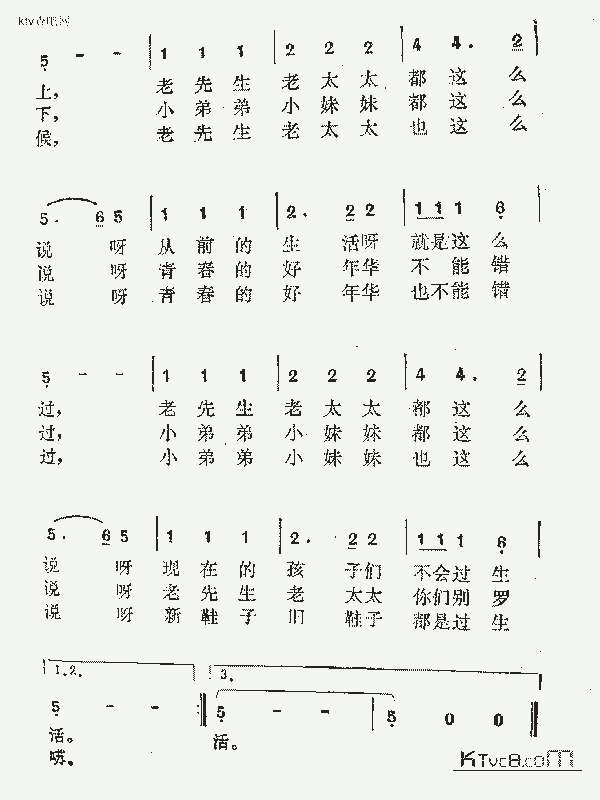 5 - - | 1 1 1 | 2 2 2 | 4 4. 2 |
上， 老 先 生 老 太 太 都 这 么
下， 小 弟 弟 小 妹 妹 都 这 么
候， 老 先 生 老 太 太 也 这 么
5. 6 5 | 1 1 1 | 2. 2 2 | 1 1 1 6 |
说 呀 从 前 的 生 活 呀 就 是 这 么
说 呀 青 春 的 好 年 华 不 能 错
说 呀 青 春 的 好 年 华 也 不 能 错
5 - - | 1 1 1 | 2 2 2 | 4 4. 2 |
过， 老 先 生 老 太 太 都 这 么
过， 小 弟 弟 小 妹 妹 都 这 么
过， 小 弟 弟 小 妹 妹 也 这 么
5. 6 5 | 1 1 1 | 2. 2 2 | 1 1 1 6 |
说 呀 现 在 的 孩 子 们 不 会 过 生
说 呀 老 先 生 老 太 太 你 们 别 罗
说 呀 新 鞋 子 旧 鞋 子 都 是 过 生
1.2. 3.
5 - - :‖ 5 - - | 5 0 0 ‖
活。 活。
嗦。
KTvc8.com